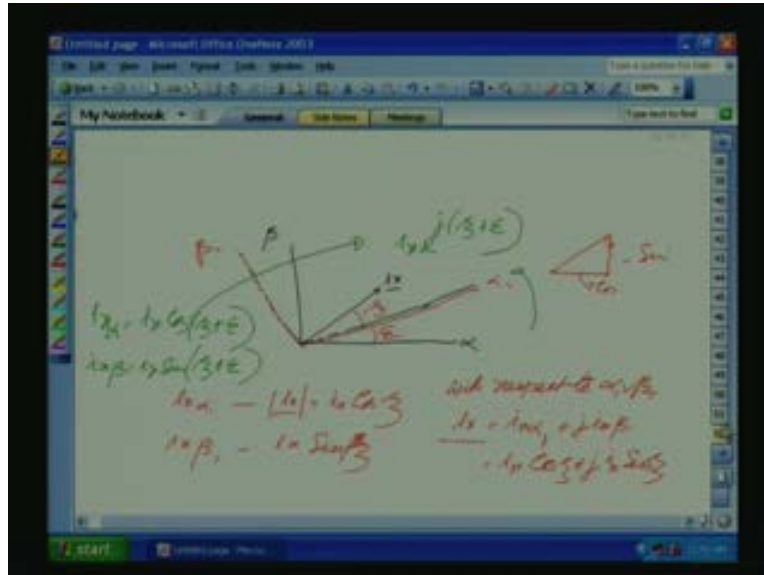 Untitled page - Microsoft Office OneNote 2003
File Edit View Insert Format Tools Window Help
Type a question for help
100%
My Notebook
General
Side Notes
Meetings
Type text to find
β
β₁
ix e^{j(ξ+ε)}
ix
α₁
ξ
ε
α
Sin
Cos
ixα = ix Cos(ξ+ε)
ixβ = ix Sin(ξ+ε)
ixα₁ - |ix| = ix Cos ξ
ixβ₁ - ix Sin ξ
with respect to α₁ β₁
ix = ixα₁ + j ixβ
= ix Cos ξ + j ix Sin ξ
start
Untitled page - Micro...